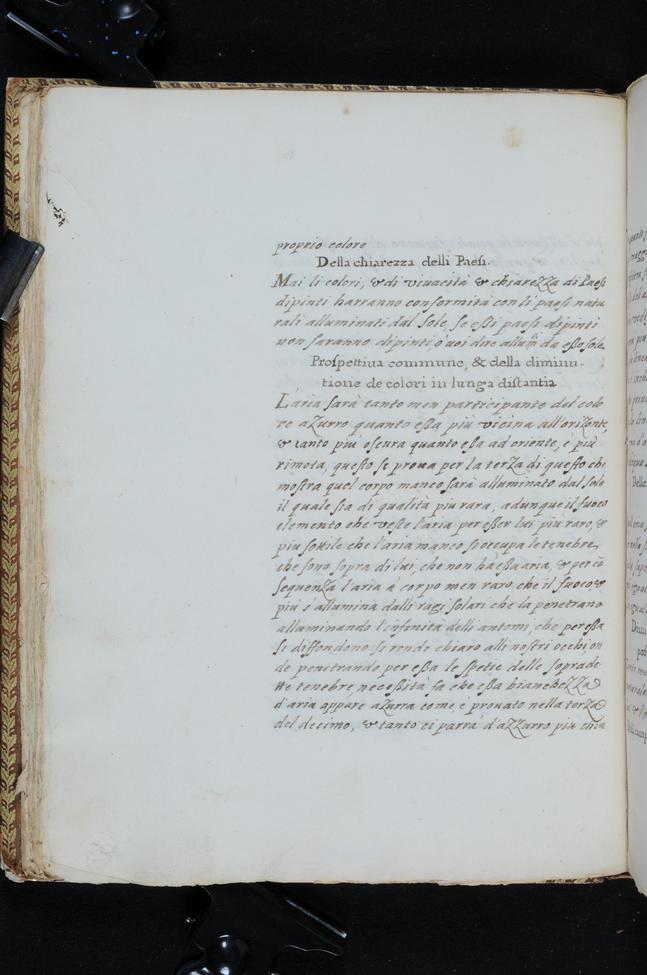 proprio colore
Della chiarezza delli Paesi.
Mai li colori, & di viuacità & chiarezza di Paesi
dipinti harranno conformità con li paesi natu
rali alluminati dal Sole, se essi paesi dipinti
non saranno dipinti, o uoi dire allum.ti da esso sole.
Prospettiua commune, & della diminu-
tione de colori in lunga distantia
L'aria sarà tanto men participante del colo
re azurro quanto essa più vicina all'orizonte
& tanto più oscura quanto essa ad oriente, è più
rimota, questo se proua per la terza di questo che
mostra quel corpo manco sarà alluminato dal sole
il quale sia di qualità più rara, adunque il fuoco
elemento che veste l'aria per esser lui più raro, &
più sottile che l'aria manco si occupa le tenebre,
che sono sopra di lui, che non ha essa aria, & per cõ
sequenza l'aria à corpo men raro che il fuoco, &
più s'allumina dalli ragi solari che la penetrano
alluminando l'infinità delli antomi, che per essa
si diffondono si rende chiaro alli nostri occhi, on
de penetrando per essa le spetie delle soprade
tte tenebre, necessità fa che essa bianchezza
d'aria appare azurra come, è prouato nella terza
del decimo, & tanto ci parrà d'azzurro più chia